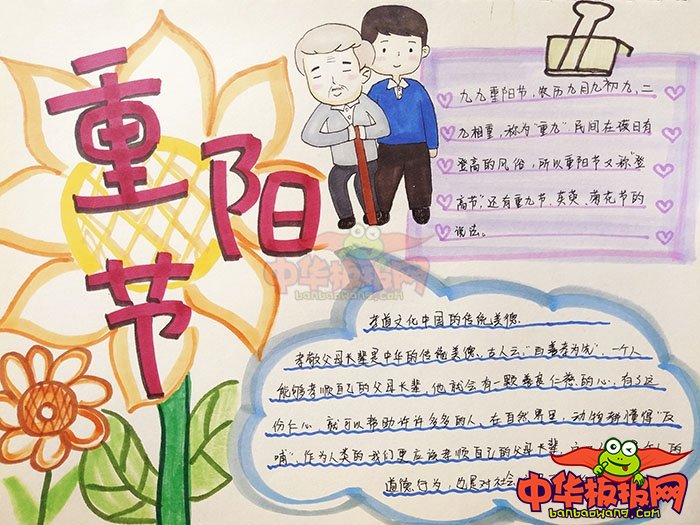 重阳节
九九重阳节，农历九月九初九，二
九相重，称为"重九"民间在该日有
登高的风俗，所以重阳节又称"登
高节"，还有重九节、茱萸、菊花节的
说法。
孝道文化中国的传统美德
孝敬父母长辈是中华的传统美德。古人云："百善孝为先"，一个人
能够孝顺自己的父母长辈，他就会有一颗善良仁慈的心，有了这
份仁心，就可以帮助许许多多的人，在自然界里，动物都懂得"反
哺"，作为人类的我们更应该孝顺自己的父母长辈
道德行为，也是对社会
中华板报网
banbaowang.com
中华板报网
banbaowang.com